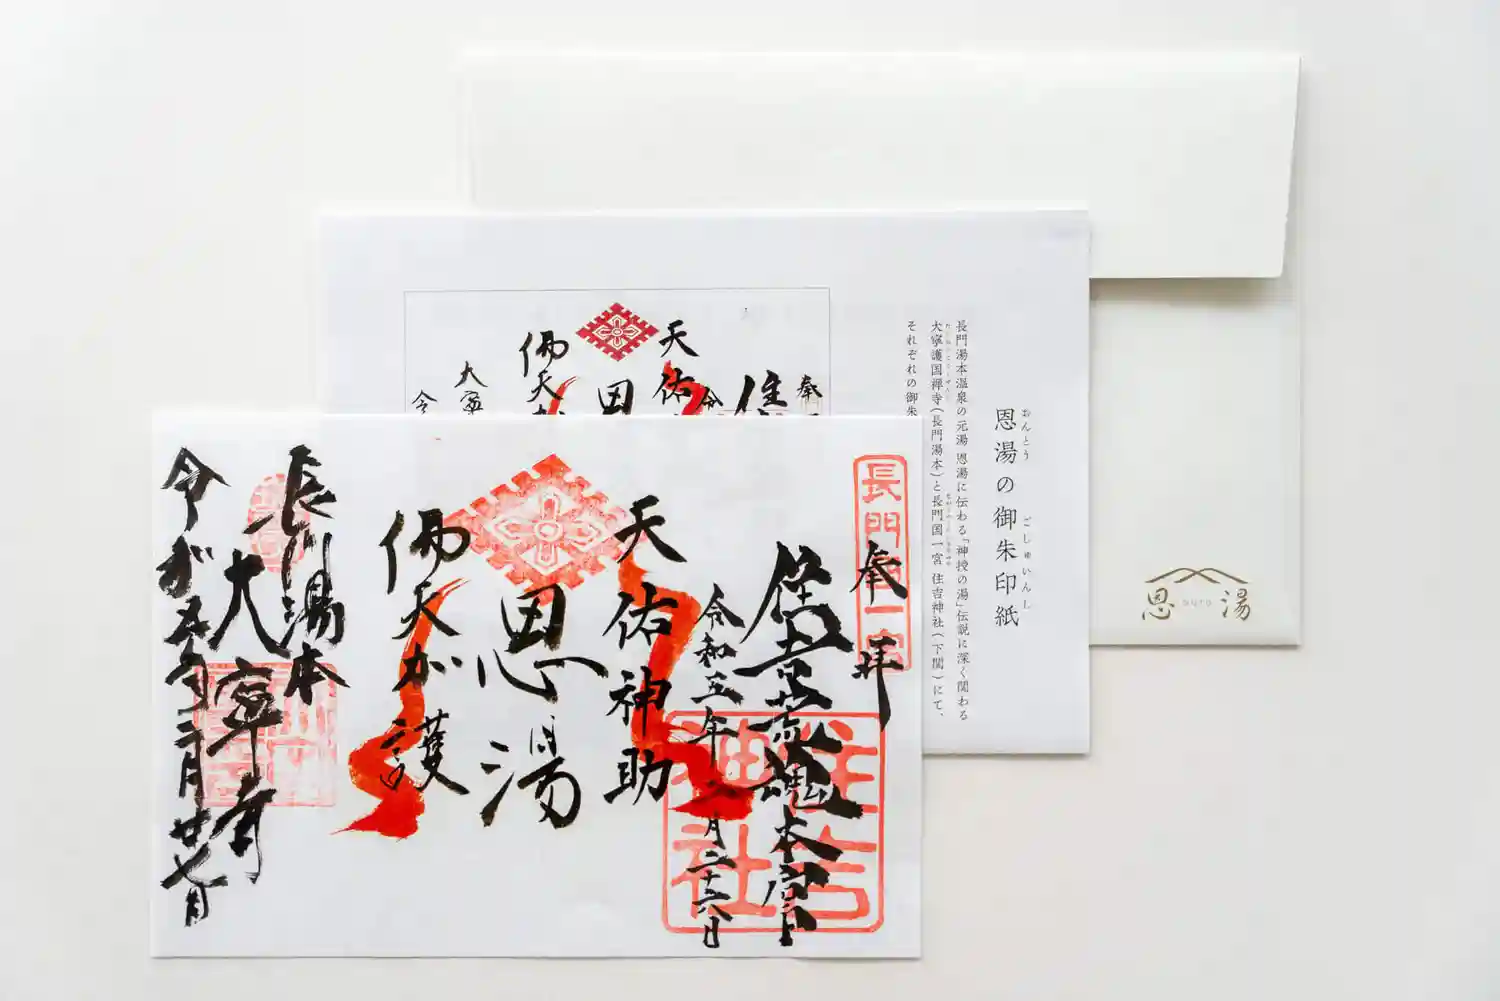 奉拝
長門國一宮
住吉荒魂本宮
住吉神社
令和五年二月二十六日
天佑神助
恩湯
佛天加護
長門湯本
大寧寺
奉
住
令
天佑
恩
佛天
大寧
令
恩湯の御朱印紙
おんとう
ごしゅいんし
長門湯本温泉の元湯 恩湯に伝わる「神授の湯」伝説に深く関わる
大寧護国禅寺(長門湯本)と長門国一宮 住吉神社(下関)にて、
それぞれの御朱
恩湯
onto